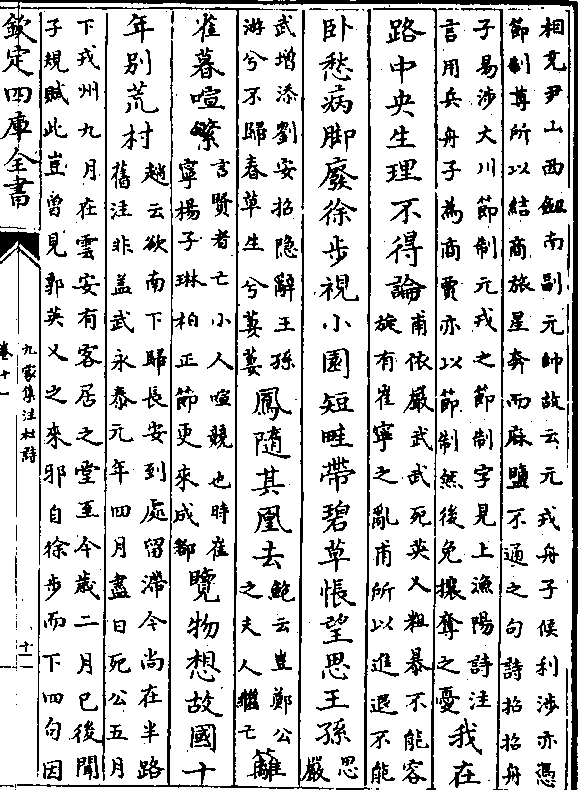 相兗尹山西劔南副元帥故云元戎舟子候利涉亦憑
節制尊所以結商旅星奔而麻鹽不通之句詩招招舟
子易涉大川節制元戎之節制字見上漁陽詩注
言用兵舟子為商賈亦以節制然後免攘奪之憂 我在
路中央生理不得論 甫依嚴武武死英乂粗暴不能容
旋有崔寧之亂甫所以進退不能
卧愁病脚廢徐步視小園短畦帶碧草悵望思王孫 思嚴
武增添劉安招隐辭王孫
游兮不歸春草生兮萋萋 鳳隨其凰去 鮑云豈鄭公
之夫人繼亡 籬
雀暮喧繁 言賢者亡小人喧競也時崔
寧楊子琳柏正節更來成都 覽物想故國十
年别荒村 趙云欲南下歸長安到處留滯今尚在半路
舊注非盖武永泰元年四月盡日死公五月
下戎州九月在雲安有客居之堂至今歲二月已後聞
子規賦此豈曾見郭英乂之來邪自徐步而下四句因
欽定四庫全書
九家集注杜詩
卷十一
十一